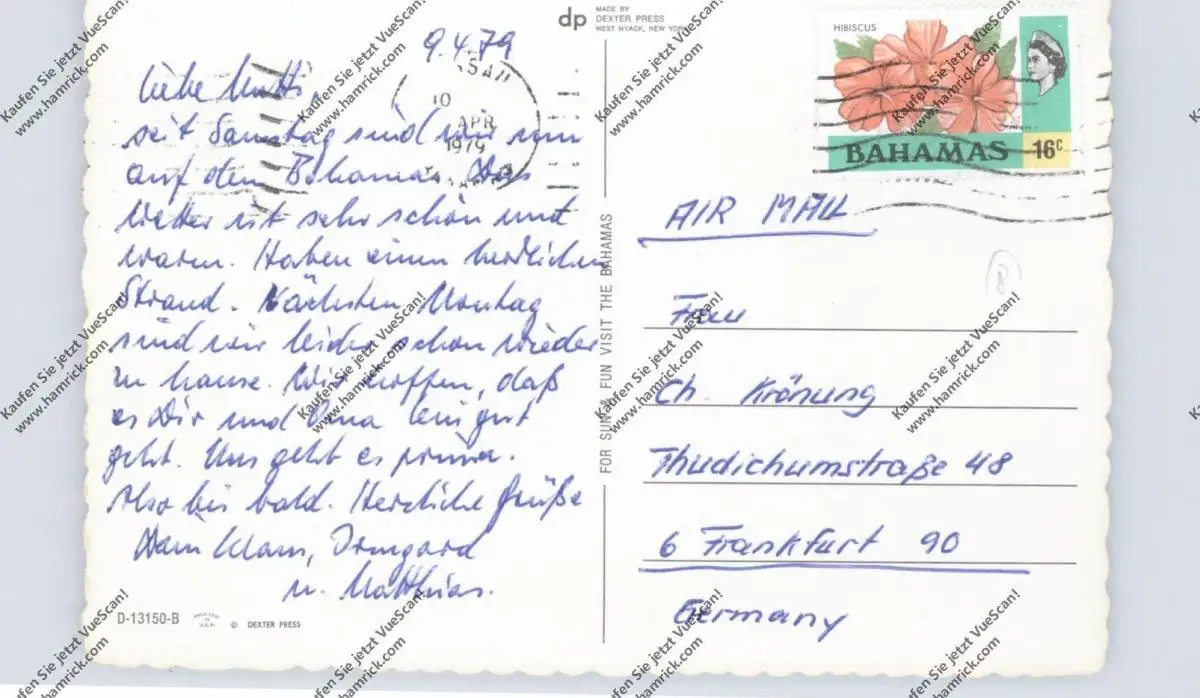 dp
MADE BY
DEXTER PRESS
WEST NYACK, NEW YORK
9.4.79
Liebe Mutti,
seit Samstag sind wir nun
auf den Bahamas. Das
Wetter ist sehr schön und
warm. Haben einen herrlichen
Strand. Nächsten Montag
sind wir leider schon wieder
zu hause. Wir hoffen, daß
es Dir und Oma gut
geht. Uns geht es prima.
Also bis bald. Herzliche Grüße
Dein Klaus, Irmgard
u. Matthias.
D-13150-B
© DEXTER PRESS
10
APR
1979
FOR SUN & FUN VISIT THE BAHAMAS
HIBISCUS
BAHAMAS 16c
AIR MAIL
8
Frau
Ch. Krönung
Thudichumstraße 48
6 Frankfurt 90
Germany
Kaufen Sie jetzt VueScan!
www.hamrick.com